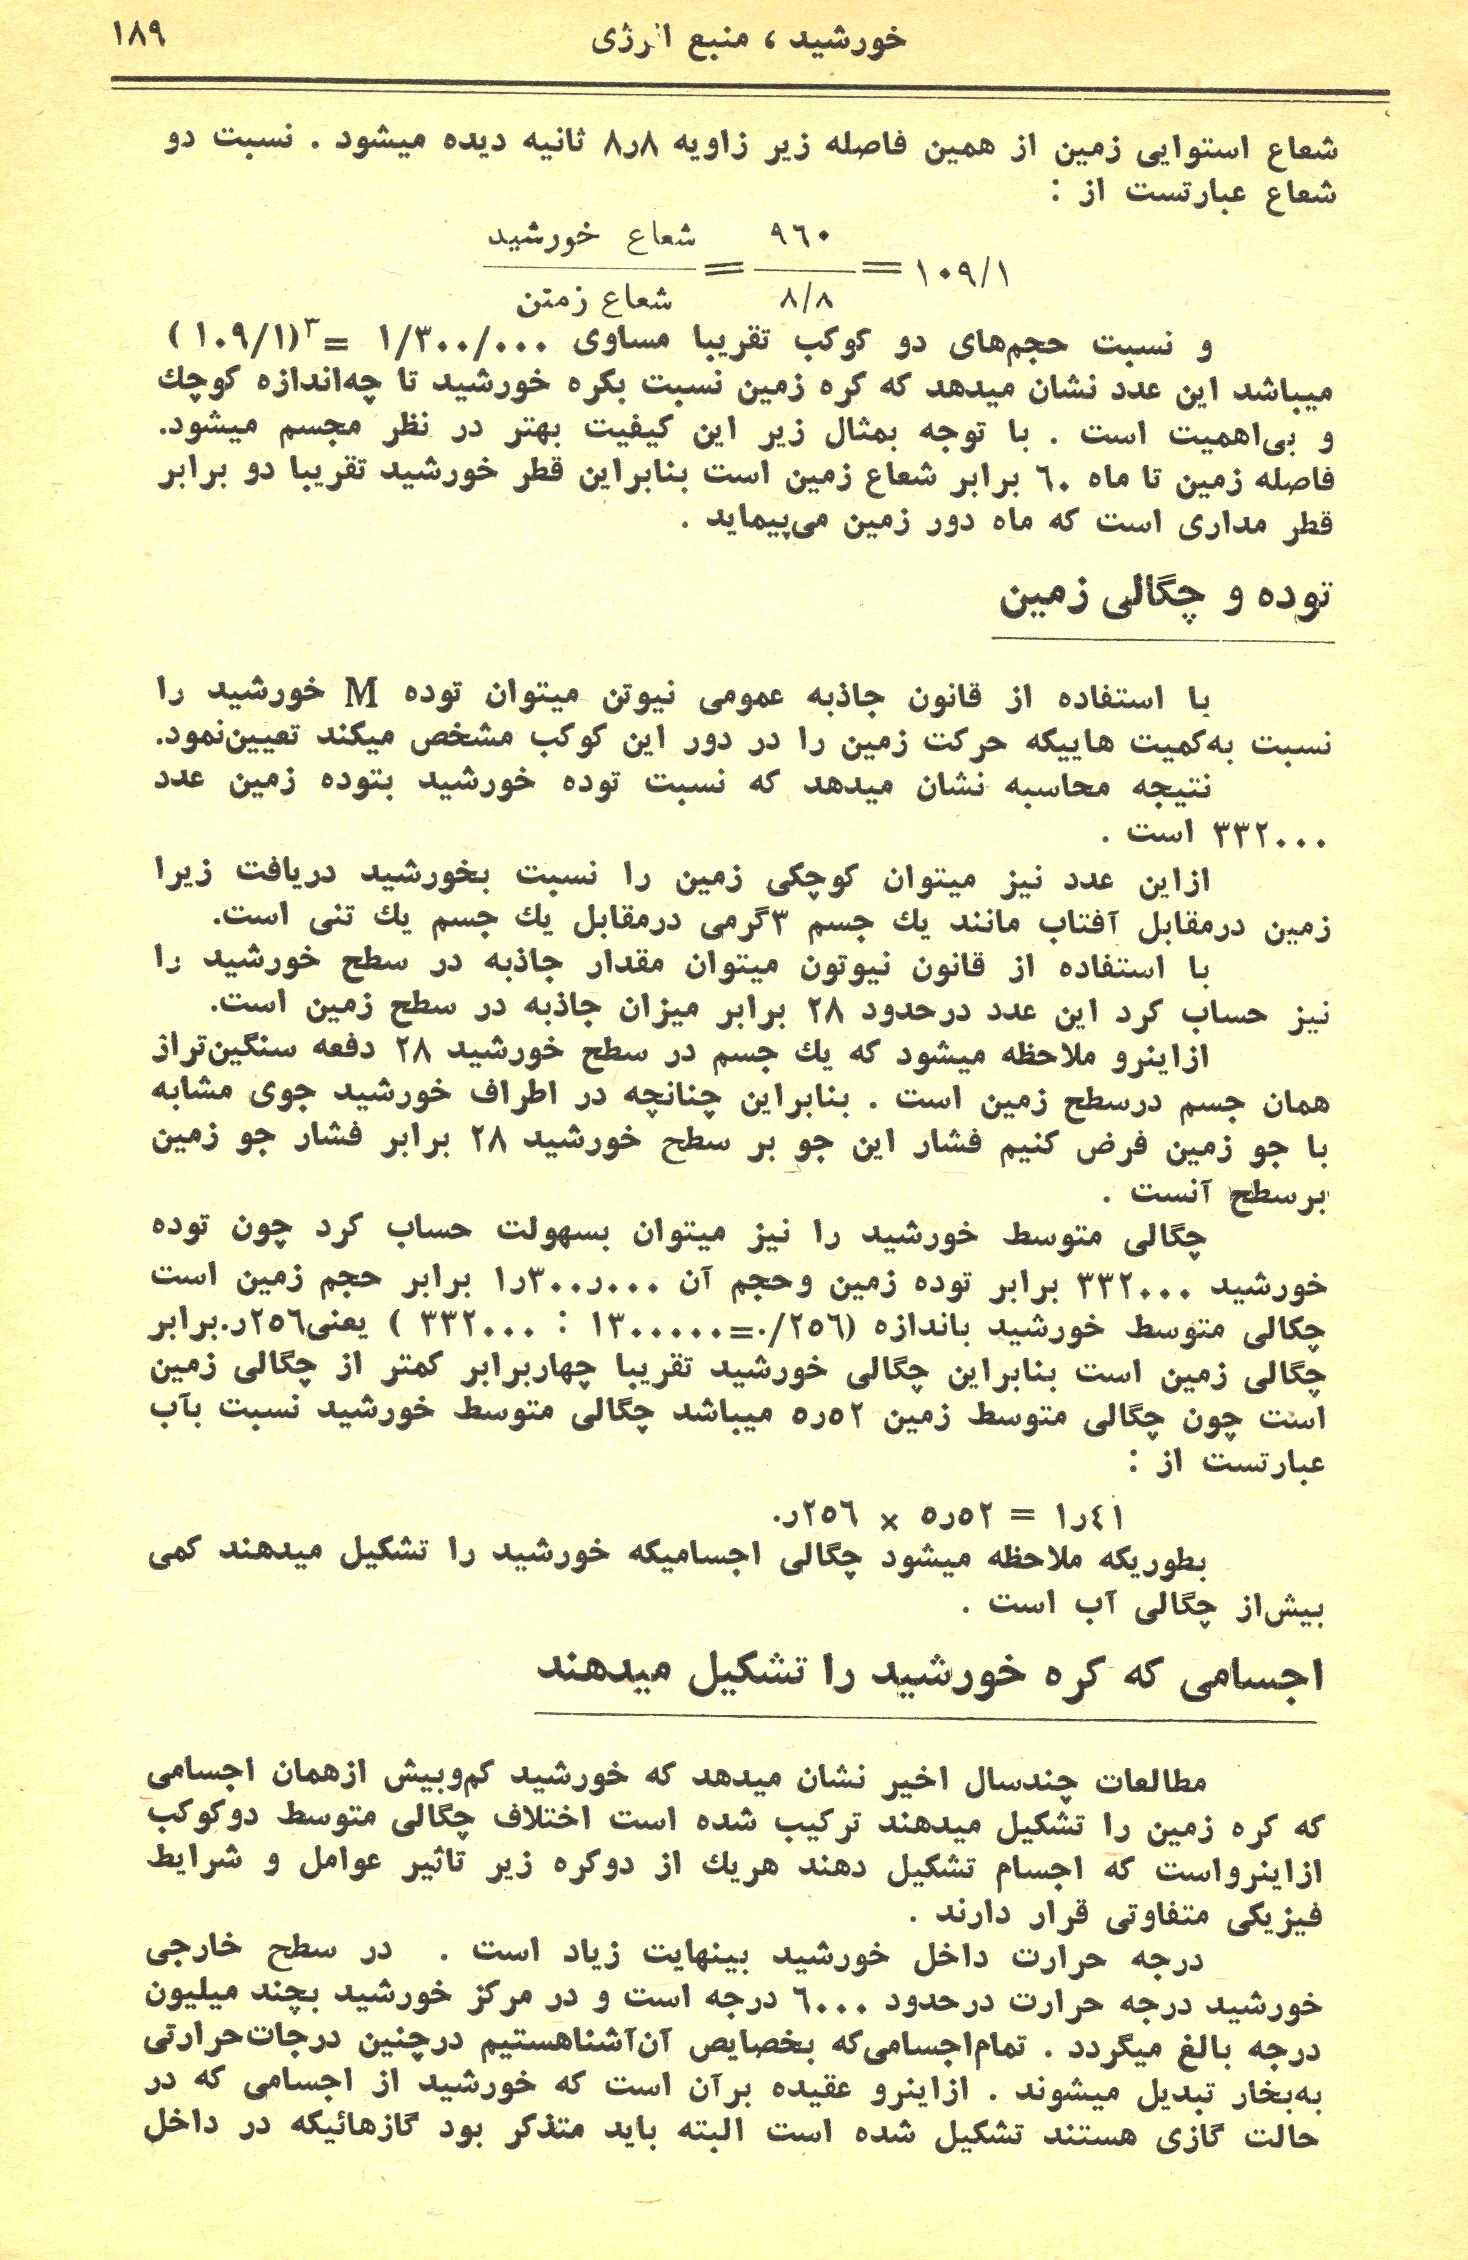 خورشید ، منبع انرژی
۱۸۹
شعاع استوایی زمین از همین فاصله زیر زاویه ۸ر۸ ثانیه دیده میشود . نسبت دو
شعاع عبارتست از :
شعاع خورشید / شعاع زمتن = ۹۶۰ / ۸/۸ = ۱۰۹/۱
و نسبت حجم‌های دو کوکب تقریبا مساوی ۱/۳۰۰/۰۰۰ = ³(۱۰۹/۱)
میباشد این عدد نشان میدهد که کره زمین نسبت بکره خورشید تا چه‌اندازه کوچك
و بی‌اهمیت است . با توجه بمثال زیر این کیفیت بهتر در نظر مجسم میشود.
فاصله زمین تا ماه ۶۰ برابر شعاع زمین است بنابراین قطر خورشید تقریبا دو برابر
قطر مداری است که ماه دور زمین می‌پیماید .
توده و چگالی زمین
با استفاده از قانون جاذبه عمومی نیوتن میتوان توده M خورشید را
نسبت به‌کمیت هاییکه حرکت زمین را در دور این کوکب مشخص میکند تعیین‌نمود.
نتیجه محاسبه نشان میدهد که نسبت توده خورشید بتوده زمین عدد
۳۳۲۰۰۰ است .
ازاین عدد نیز میتوان کوچکی زمین را نسبت بخورشید دریافت زیرا
زمین درمقابل آفتاب مانند یك جسم ۳گرمی درمقابل یك جسم یك تنی است.
با استفاده از قانون نیوتون میتوان مقدار جاذبه در سطح خورشید را
نیز حساب کرد این عدد درحدود ۲۸ برابر میزان جاذبه در سطح زمین است.
ازاینرو ملاحظه میشود که یك جسم در سطح خورشید ۲۸ دفعه سنگین‌تراز
همان جسم درسطح زمین است . بنابراین چنانچه در اطراف خورشید جوی مشابه
با جو زمین فرض کنیم فشار این جو بر سطح خورشید ۲۸ برابر فشار جو زمین
برسطح آنست .
چگالی متوسط خورشید را نیز میتوان بسهولت حساب کرد چون توده
خورشید ۳۳۲۰۰۰ برابر توده زمین وحجم آن ۱ر۳۰۰ر۰۰۰ برابر حجم زمین است
چکالی متوسط خورشید باندازه (۰/۲۵۶=۱۳۰۰۰۰۰ : ۳۳۲۰۰۰ ) یعنی۰ر۲۵۶برابر
چگالی زمین است بنابراین چگالی خورشید تقریبا چهاربرابر کمتر از چگالی زمین
است چون چگالی متوسط زمین ۵ر۵۲ میباشد چگالی متوسط خورشید نسبت بآب
عبارتست از :
۰ر۲۵۶ × ۵ر۵۲ = ۱ر۴۱
بطوریکه ملاحظه میشود چگالی اجسامیکه خورشید را تشکیل میدهند کمی
بیش‌از چگالی آب است .
اجسامی که کره خورشید را تشکیل میدهند
مطالعات چندسال اخیر نشان میدهد که خورشید کم‌وبیش ازهمان اجسامی
که کره زمین را تشکیل میدهند ترکیب شده است اختلاف چگالی متوسط دوکوکب
ازاینرواست که اجسام تشکیل دهند هریك از دوکره زیر تاثیر عوامل و شرایط
فیزیکی متفاوتی قرار دارند .
درجه حرارت داخل خورشید بینهایت زیاد است . در سطح خارجی
خورشید درجه حرارت درحدود ۶۰۰۰ درجه است و در مرکز خورشید بچند میلیون
درجه بالغ میگردد . تمام‌اجسامی‌که بخصایص آن‌آشناهستیم درچنین درجات‌حرارتی
به‌بخار تبدیل میشوند . ازاینرو عقیده برآن است که خورشید از اجسامی که در
حالت گازی هستند تشکیل شده است البته باید متذکر بود گازهائیکه در داخل